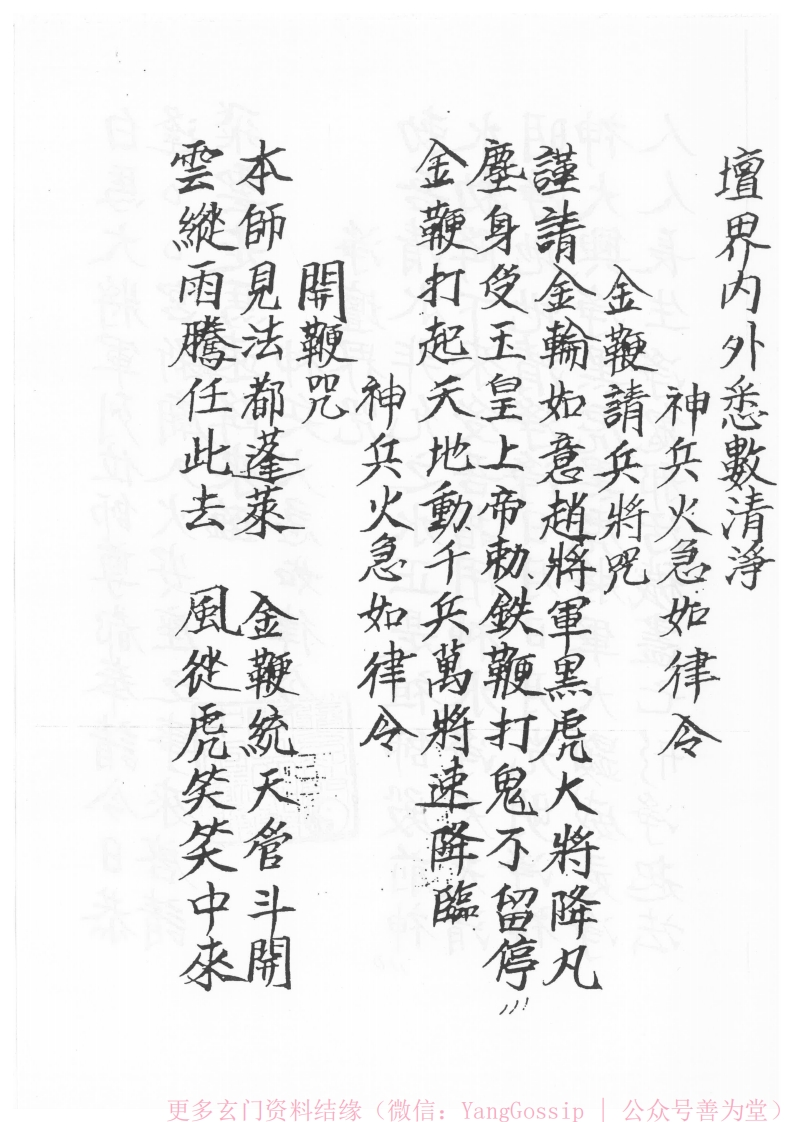 壇界内外悉數清淨
神兵火急如律令
金鞭請兵將咒
謹請金輪如意趙將軍黑虎大將降凡
塵身受玉皇上帝勅鉄鞭打鬼不留停
金鞭打起天地動千兵萬將速降臨
神兵火急如律令
開鞭咒
本師見法都蓬萊 金鞭統天管斗開
雲縱雨騰任此去 風從虎笑笑中來
更多玄门资料结缘（微信：YangGossip | 公众号善为堂）